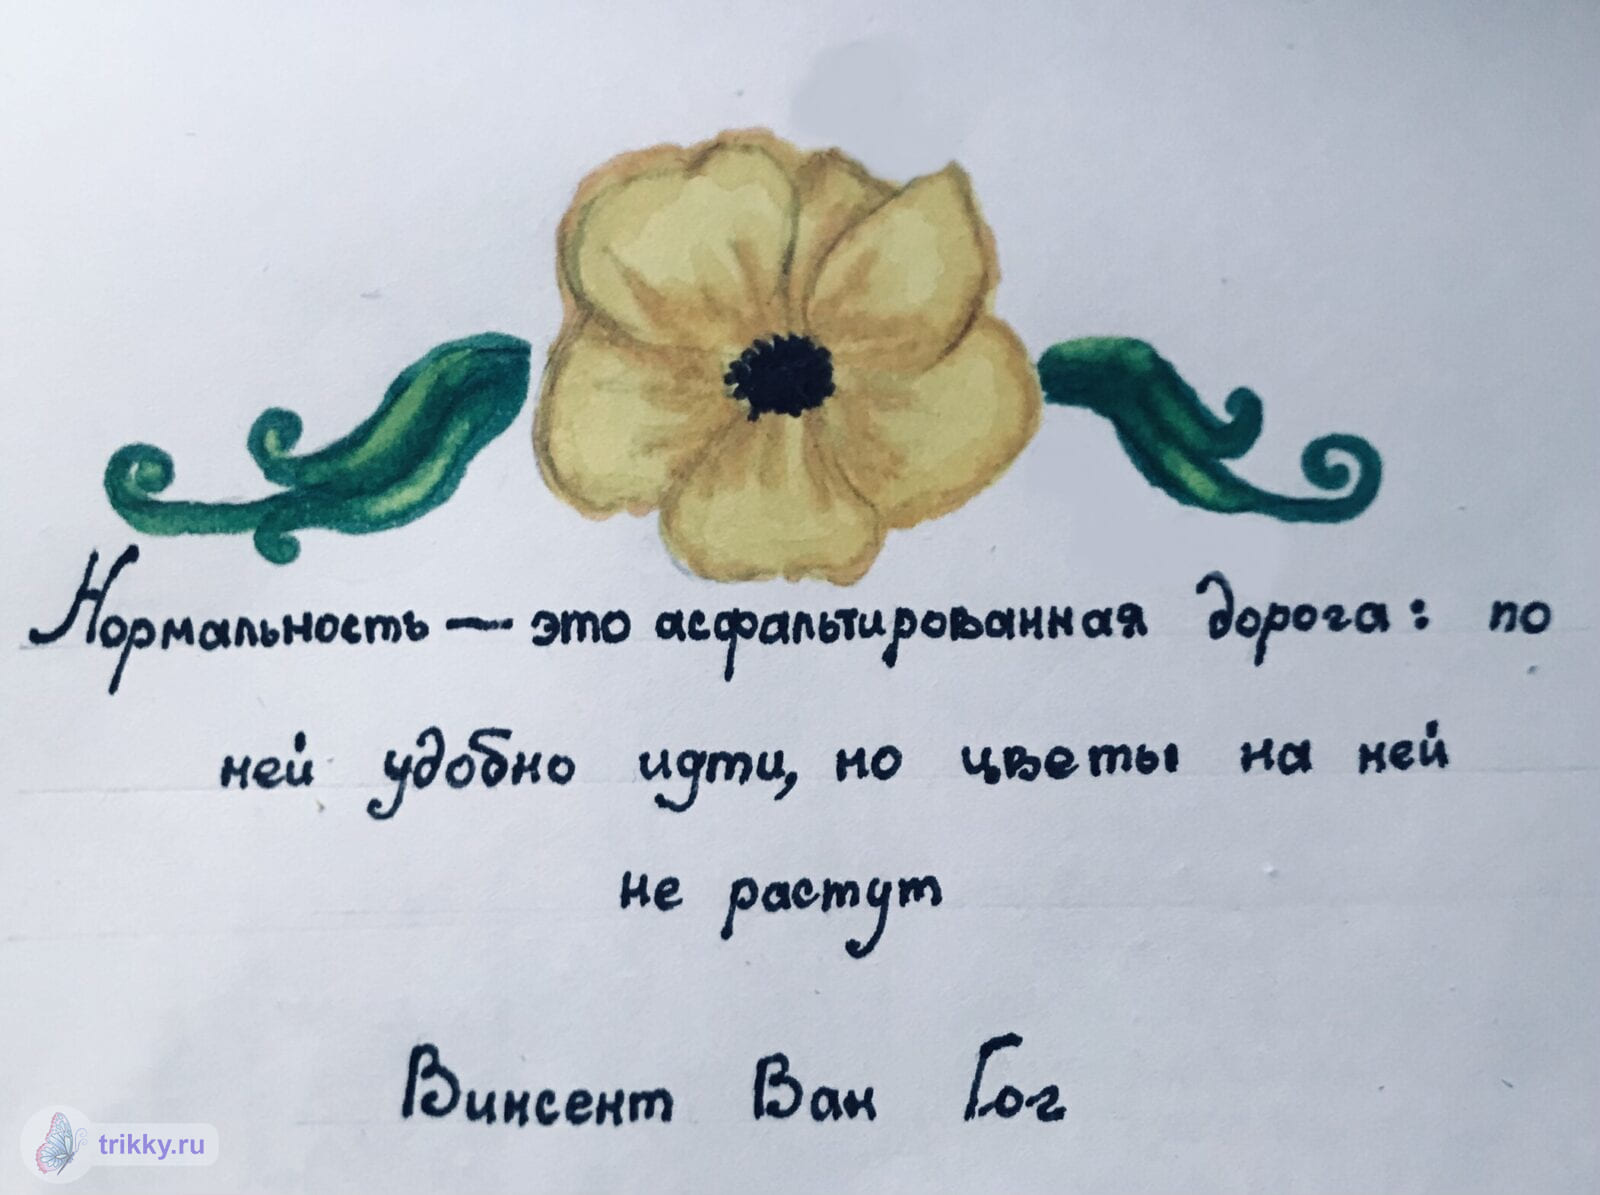 Нормальность — это асфальтированная дорога: по
ней удобно идти, но цветы на ней
не растут
Винсент Ван Гог
trikky.ru